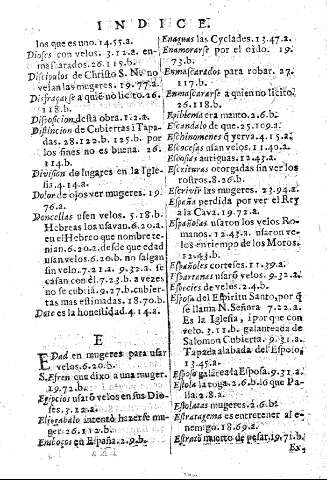 INDICE.
los que es uno. 14.55.a.
Dioses con velos. 3.12.a. en-
mascarados.26.115.b.
Discipulos de Christo S. N. no
velan las mugeres. 19.77.a.
Disfraçarse a quié no licito. 26.
118.b.
Disposicion desta obra.1.2.a.
Distincion de Cubiertas i Tapa-
das. 28.122.b. 125.b. por
los fines no es buena. 26.
114.b.
Division de lugares en la Igle-
sia. 4.14.a.
Dolor de ojos ver mugeres. 19.
76.a.
Doncellas usen velos. 5.18.b.
Hebreas los usavan.6.20.a.
en el Hebreo que nombre te-
nian.6.20.a.desde que edad
usan velos.6.20.b. no salgan
sin velo.7.21.a. 9.32.a. se
caían con èl.7.23.b. a vezes
no se cubriã.9.27.b.cubier-
tas mas estimadas. 18.70.b.
Dote es la honestidad.4.14.a.
E
EDad en mugeres para usar
velos.6.20.b.
S. Efren que dixo a una muger.
19.72.b.
Egipcios usarõ velos en sus Dio-
ses.3.12.a.
Eliogabalo intentò hazerse mu-
ger. 26.112.b.
Emboços en España.2.9.b.
Enaguas las Cycladas. 13.47.a.
Enamorarse por el oido. 19.
73.b.
Enmascarados para robar. 27.
117.b.
Enmascararse a quien no licito.
26.118.b.
Epiblema era manto.2.6.b.
Escandalo de que. 25.109.a.
Eschinomenes q̃ yerva.4.15.a.
Escocesas usan velos. 11.40.a.
Escosias antiguas. 12.43.a.
Escrituras otorgadas sin ver los
rostros.8.26.b.
Escrivir las mugeres. 23.94.a.
España perdida por ver el Rey
a la Cava. 19.72.a.
Españolas usaron los velos Ro-
manos. 12.43.a. usaron ve-
los en tiempo de los Moros.
12.43.b.
Españoles corteses. 11.39.a.
Espartanas usarõ velos. 9.32.a.
Especies de velos.2.4.b.
Esposa del Espiritu Santo, por q̃
se llama N. Señora 7.22.a.
Es la Iglesia, i por que con
velo. 3.11.b. galanteada de
Salomon Cubierta. 9.31.a.
Tapada alabada del Esposo.
13.45.a.
Esposo galãtea la Esposa.9.31.a.
Estola la toga. 2.6.b. lo que Pa-
lla.2.8.a.
Estolatas mugeres. 2.6.b.
Estratagema es entretener al e-
nemigo. 18.69.a.
Estraro muerto de pesar.19.71.b.
Ex-